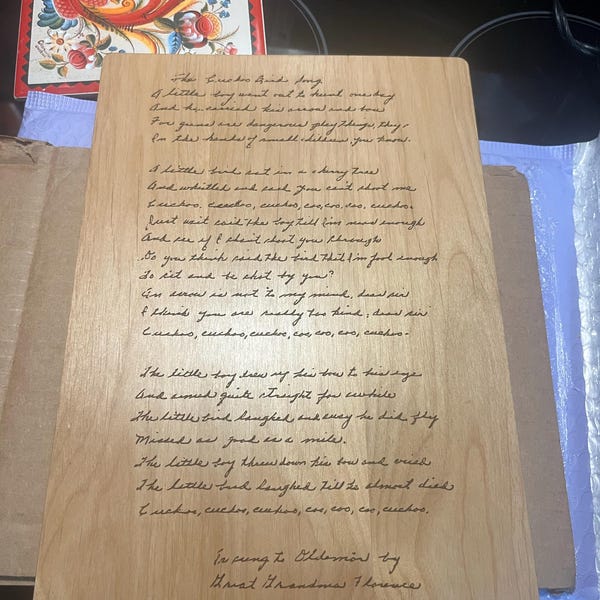 The Cuckoo Bird Song
A little boy went out to hunt one day
And he carried his arrow and bow
For guns are dangerous play things, they.
In the hands of small children you know.
A little bird sat in a cherry tree
And whistled and said you can't shoot me
Cuckoo, cuckoo, cuckoo, coo, coo, coo, cuckoo.
Just wait said the boy till I'm near enough
And see if I don't shoot you through
Do you think said the bird that I'm fool enough
To sit and be shot by you?
An arrow is not to my mind, dear sir
I think you are really too kind, dear sir
Cuckoo, cuckoo, cuckoo, coo, coo, coo, cuckoo.
The little boy drew up his bow to his eye
And aimed quite straight for awhile
The little bird laughed and away he did fly
Missed as good as a mile.
The little boy threw down his bow and cried
The little bird laughed till he almost died
Cuckoo, cuckoo, cuckoo, coo, coo, coo, cuckoo.
sung to by
Great Grandma Florence